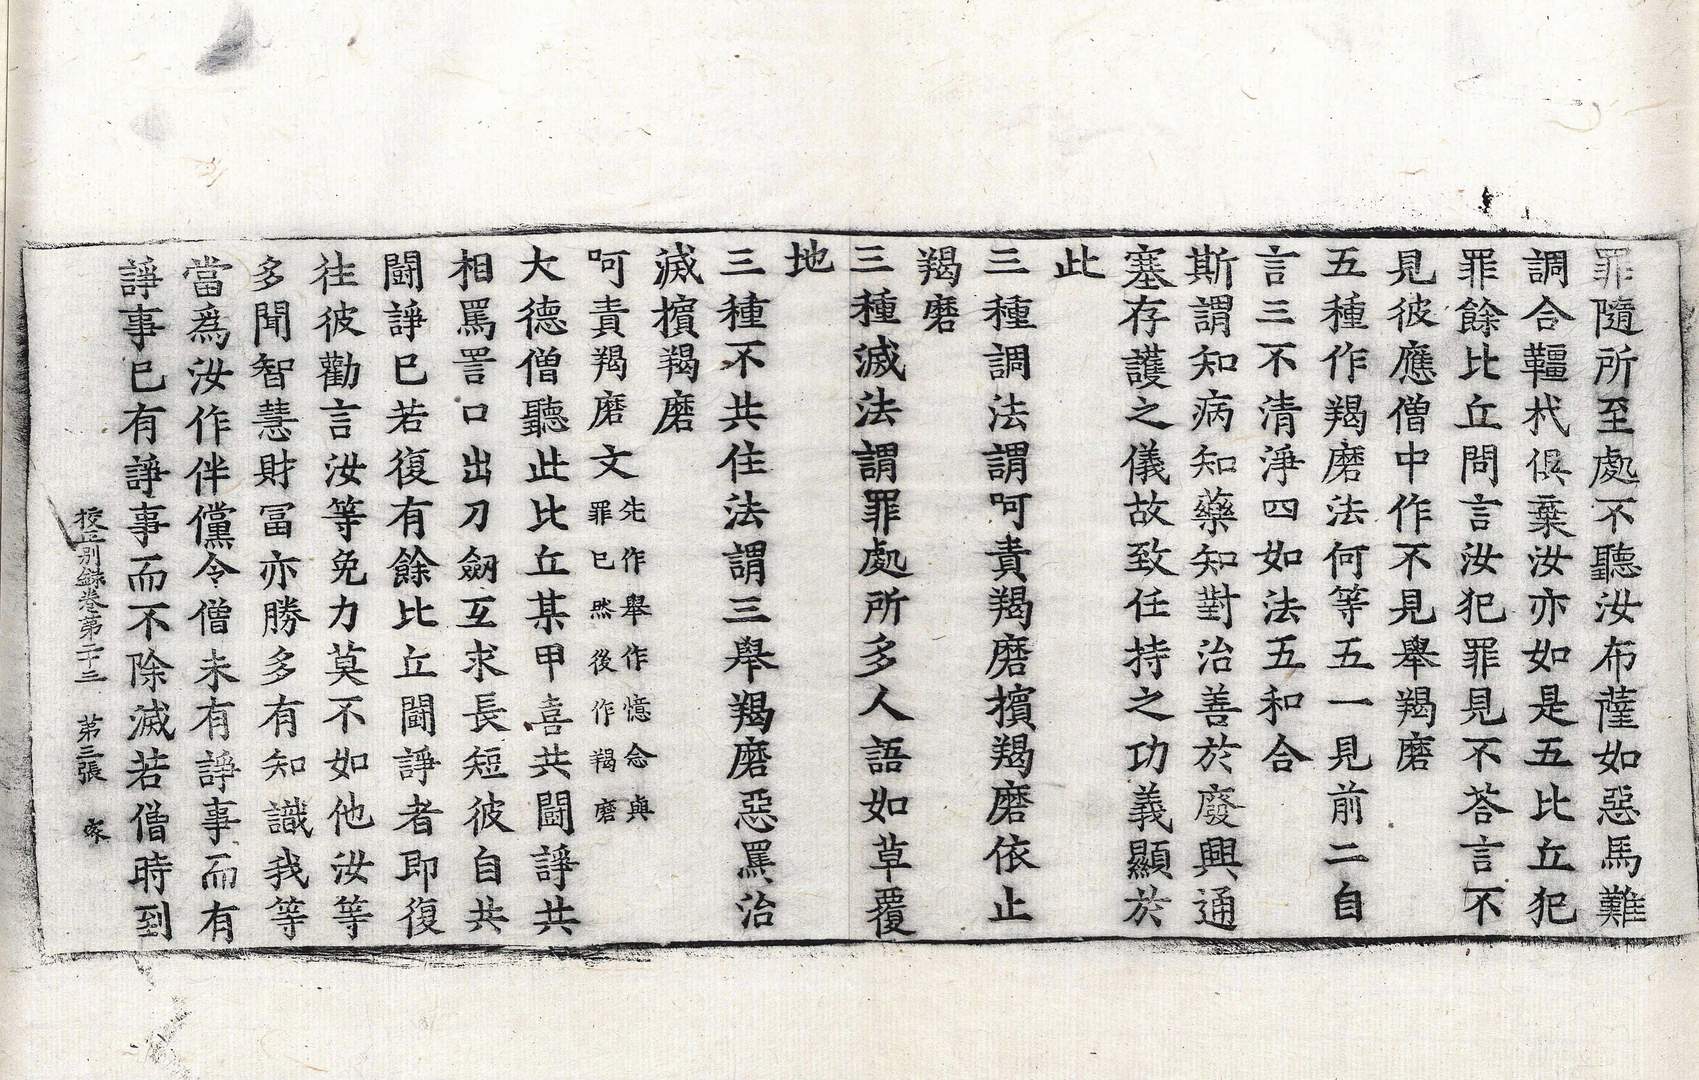 罪隨所至處不聽汝布薩如惡馬難
調合韁杙俱棄汝亦如是五比丘犯
罪餘比丘問言汝犯罪見不荅言不
見彼應僧中作不見舉羯磨
五種作羯磨法何等五一見前二自
言三不清淨四如法五和合
斯謂知病知藥知對治善於廢興通
塞存護之儀故致任持之功義顯於
此
三種調法謂呵責羯磨擯羯磨依止
羯磨
三種滅法謂罪處所多人語如草覆
地
三種不共住法謂三舉羯磨惡罵治
滅擯羯磨
呵責羯磨文先作舉作憶念與罪已然後作羯磨
大德僧聽此比丘某甲喜共鬪諍共
相罵詈口出刀劒互求長短彼自共
鬪諍已若復有餘比丘鬪諍者即復
往彼勸言汝等免力莫不如他汝等
多聞智慧財冨亦勝多有知識我等
當爲汝作伴儻令僧未有諍事而有
諍事已有諍事而不除滅若僧時到
校正別錄卷第二十三 第三張